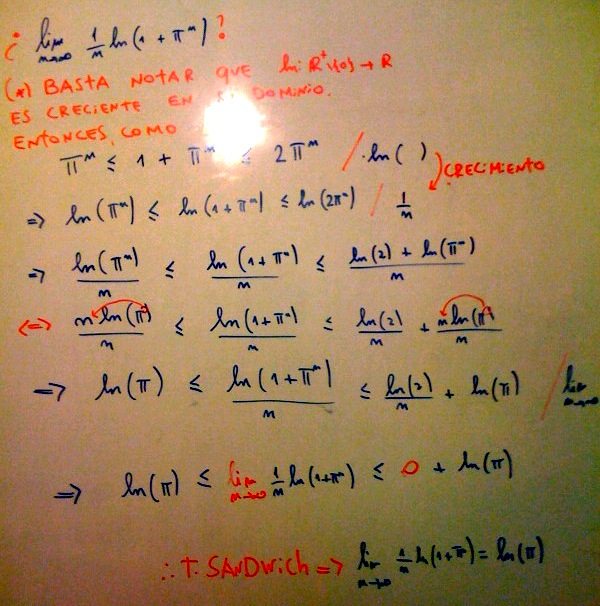 ¿ lim n→∞ 1/n ln(1 + π^n) ?
(*) BASTA NOTAR QUE ln: R⁺\{0} → R
ES CRECIENTE EN DOMINIO.
ENTONCES, COMO
π^n ≤ 1 + π^n ≤ 2π^n / ·ln( )
CRECIMIENTO
=> ln(π^n) ≤ ln(1+π^n) ≤ ln(2π^n) / 1/n
=> ln(π^n)/n ≤ ln(1+π^n)/n ≤ (ln(2) + ln(π^n))/n
<=> n ln(π)/n ≤ ln(1+π^n)/n ≤ ln(2)/n + n ln(π)/n
=> ln(π) ≤ ln(1+π^n)/n ≤ ln(2)/n + ln(π) / lim n→∞
=> ln(π) ≤ lim n→∞ 1/n ln(1+π^n) ≤ 0 + ln(π)
∴ T. SANDWICH => lim n→∞ 1/n ln(1+π^n) = ln(π)